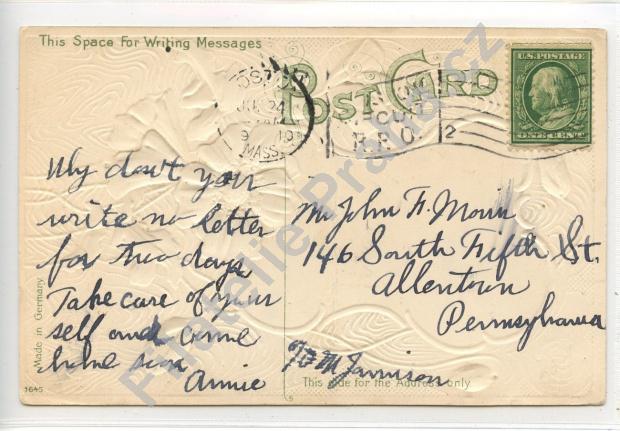 This Space For Writing Messages
POST CARD
BOSTON
MASS.
R.P.O.
2
U.S. POSTAGE
ONE CENT
Why don't you
write no letter
for two days
Take care of your
self and come
home soon
Annie
Mr John F.
146 South Fifth St.
Allentown
Pennsylvania
Made in Germany
1645
This side for the Address only
Filatelie Praha.cz